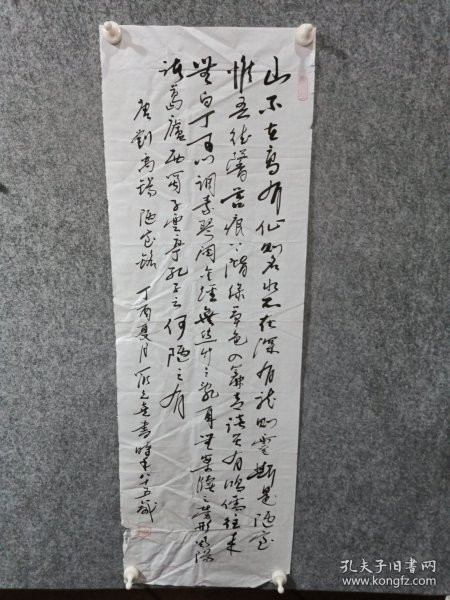 山不在高有仙则名水不在深有龙则灵斯是陋室
惟吾德馨苔痕上阶绿草色入帘青谈笑有鸿儒往来
無白丁可以调素琴阅金经無丝竹之乱耳無案牍之劳形南阳
诸葛廬西蜀子雲亭孔子云何陋之有
唐劉禹锡陋室铭 丁酉夏月 書時年八十五歲
孔夫子旧书网
www.kongfz.com